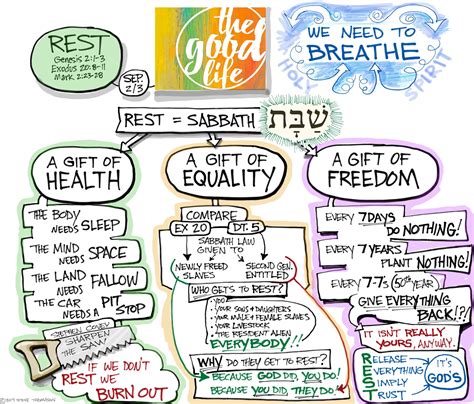 REST
Genesis 2:1-3
Exodus 20:8-11
Mark 2:23-28
SEP.
2/3
the
good
life
WE NEED TO
BREATHE
HOLY
SPIRIT
REST = SABBATH
שַׁבָּת
A GIFT OF
HEALTH
THE BODY
NEEDS SLEEP
THE MIND
NEEDS SPACE
THE LAND
NEEDS FALLOW
THE CAR
NEEDS A PIT STOP
STEPHEN COVEY
SHARPEN
THE SAW
IF WE DON'T
REST WE
BURN OUT
A GIFT OF
EQUALITY
COMPARE
EX 20
DT. 5
SABBATH LAW
GIVEN TO
NEWLY FREED
SLAVES
SECOND GEN.
ENTITLED
WHO GETS TO REST?
YOU
YOUR SONS & DAUGHTERS
YOUR MALE & FEMALE SLAVES
YOUR LIVESTOCK
THE RESIDENT ALIEN
EVERYBODY!!
WHY DO THEY GET TO REST?
BECAUSE GOD DID, YOU DO!
BECAUSE YOU DID, THEY DO!
A GIFT OF
FREEDOM
EVERY 7 DAYS
DO NOTHING!
EVERY 7 YEARS
PLANT NOTHING!
EVERY 7-7's (50th YEAR)
GIVE EVERYTHING
BACK!?
IT ISN'T REALLY
YOURS, ANYWAY.
RELEASE
EVERYTHING
SIMPLY
TRUST
IT'S
GOD'S